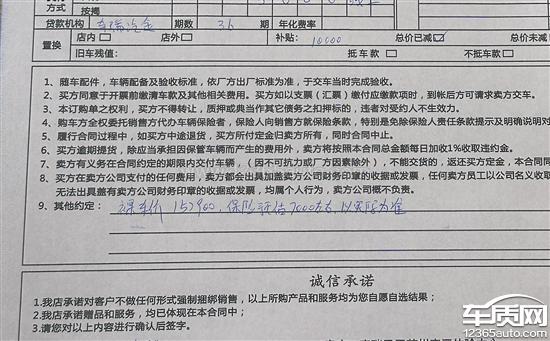 方式 按揭
贷款机构 奇瑞汽金 期数 36 期 年化费率
置换 店内 店外 补贴: 10000 总价已减 总价
旧车残值: 抵车款 不抵车款
1、随车配件，车辆配备及验收标准，依厂方出厂标准为准，于交车当时完成验收。
2、买方同意于开票前缴清车款及其他相关费用。买方如以支票（汇票）缴付应缴款项时，到帐后方可请求卖方交车。
3、本订购单之权利，买方不得转让，质押或典当作其它债务之扣押标的，违者对受约人不生效力。
4、购车方全权委托销售方代办车辆保者，保险人向销售方就保险条款，特别是免除保险人责任条款提示及明确说明对
5、履行合同过程中，如买方中途退货，买方所付定金归卖方所有，同时合同中止。
6、买方逾期提货，除应当承担因保管车辆而产生的费用外，卖方将按照本合同总金额每日加收1%收取违约金。
7、卖方有义务在合同约定的期限内交付车辆，（因不可抗力或厂方因素除外），不能交货的，返还买方定金，本合同同
8、买方在卖方公司支付的任何费用，卖方都会出具加盖卖方公司财务印章的收据或发票，任何卖方员工以公司名义收取
无法出具盖有卖方公司财务印章的收据或发票，均属个人行为，卖方公司概不负责。
9、其他约定: 裸车价 157900，保险预估7000左右，以实际为准
诚信承诺
1.我店承诺对客户不做任何形式强制捆绑销售，以上所购产品和服务均为您自愿自选结果；
2.我店承诺赠品和服务，均已体现在本合同中；
3.请您对以上内容进行确认后签字。
车质网
12365auto.com